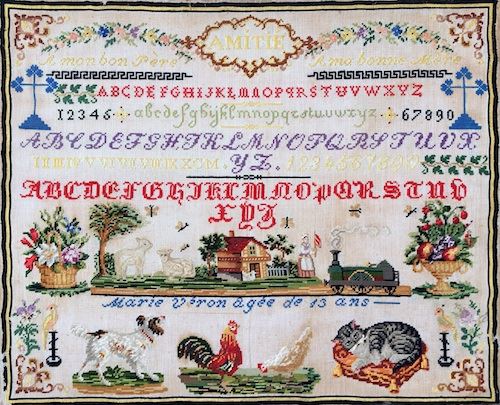 AMITIÉ
A mon bon Père A ma bonne Mère
ABCDEFGHIJKLMNOPQRSTUVWXYZ
12345 abcdefghijklmnopqrstuvwxyz. 67890
ABCDEFGHIJKLMNOPQRSTUVX
YZ. 1234567890
ABCDEFGHIJKLMNOPQRSTUV
XYZ
Marie Véron âgée de 13 ans